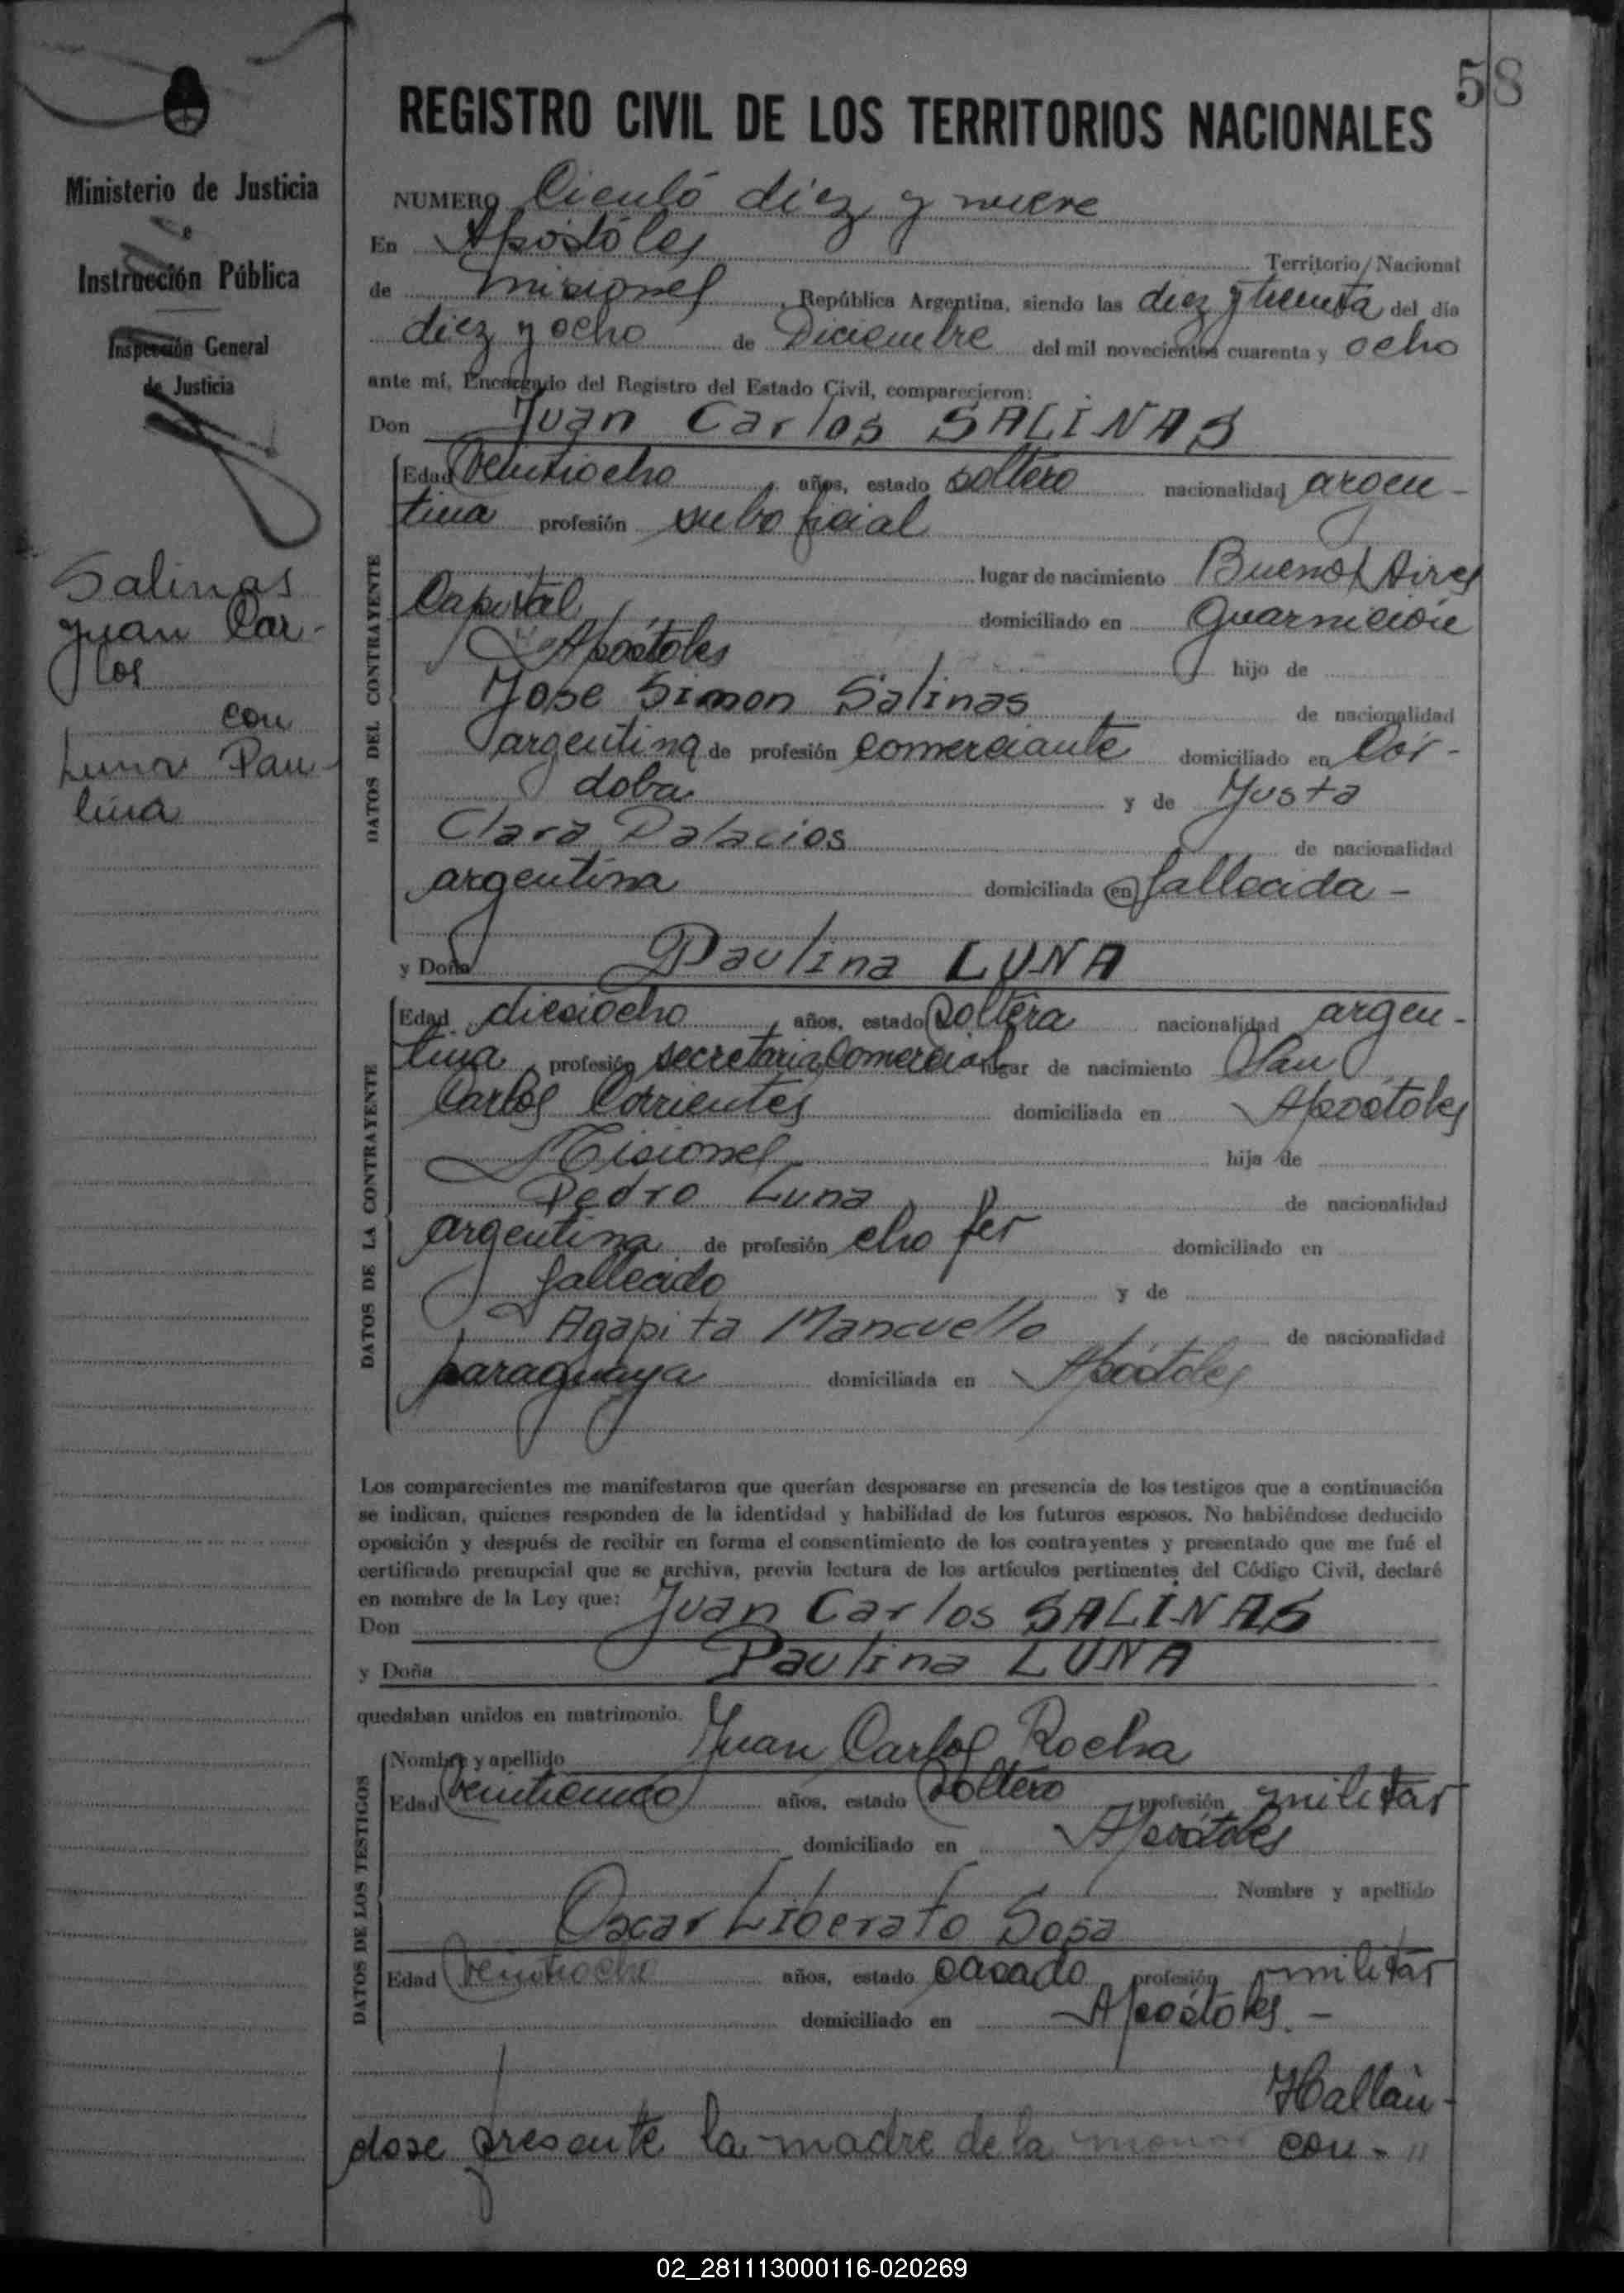 58
REGISTRO CIVIL DE LOS TERRITORIOS NACIONALES
Ministerio de Justicia
e
Instrucción Pública
Inspección General
de Justicia
Salinas
Juan Car-
los
con
Luna Pau-
lina
NUMERO Cientó diez y nueve
En Apóstóles Territorio Nacional
de Misiones, República Argentina, siendo las diez y treinta del día
diez y ocho de Diciembre del mil novecientos cuarenta y ocho
ante mí, Encargado del Registro del Estado Civil, comparecieron:
Don Juan Carlos SALINAS
DATOS DEL CONTRAYENTE
Edad veintiocho años, estado soltero nacionalidad argen-
tina profesión suboficial
lugar de nacimiento Buenos Aires
Capital domiciliado en Guarnición
Apóstoles hijo de
Jose Simon Salinas de nacionalidad
argentina de profesión comerciante domiciliado en Cór-
doba y de Justa
Clara Palacios de nacionalidad
argentina domiciliada en fallecida -
y Doña Paulina LUNA
DATOS DE LA CONTRAYENTE
Edad diesiocho años, estado soltera nacionalidad argen-
tina profesión secretaria Comercial lugar de nacimiento San
Carlos Corrientes domiciliada en Apóstoles
Misiones hija de
Pedro Luna de nacionalidad
argentina de profesión chofer domiciliado en
fallecido y de
Agapita Mancuello de nacionalidad
paraguaya domiciliada en Apóstoles
Los comparecientes me manifestaron que querían desposarse en presencia de los testigos que a continuación
se indican, quienes responden de la identidad y habilidad de los futuros esposos. No habiéndose deducido
oposición y después de recibir en forma el consentimiento de los contrayentes y presentado que me fué el
certificado prenupcial que se archiva, previa lectura de los artículos pertinentes del Código Civil, declaré
en nombre de la Ley que:
Don Juan Carlos SALINAS
y Doña Paulina LUNA
quedaban unidos en matrimonio.
DATOS DE LOS TESTIGOS
Nombre y apellido Juan Carlos Rocha
Edad veinticinco años, estado soltero profesión militar
domiciliado en Apóstoles
Nombre y apellido
Oscar Liberato Sosa
Edad veintiocho años, estado casado profesión militar
domiciliado en Apóstoles. -
Hallán-
dose presente la madre de la menor con- "
02_281113000116-020269